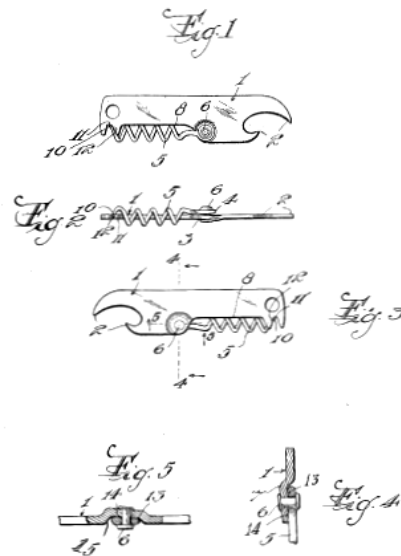 Fig.1
1
6
8
11
10
12
5
2
Fig 2
10
1
5
6
4
2
12
11
3
4
1
8
12
11
2
5
6
5
5
10
Fig. 3
4
Fig. 5
1
14
13
15
6
1
13
7
6
14
5
Fig. 4